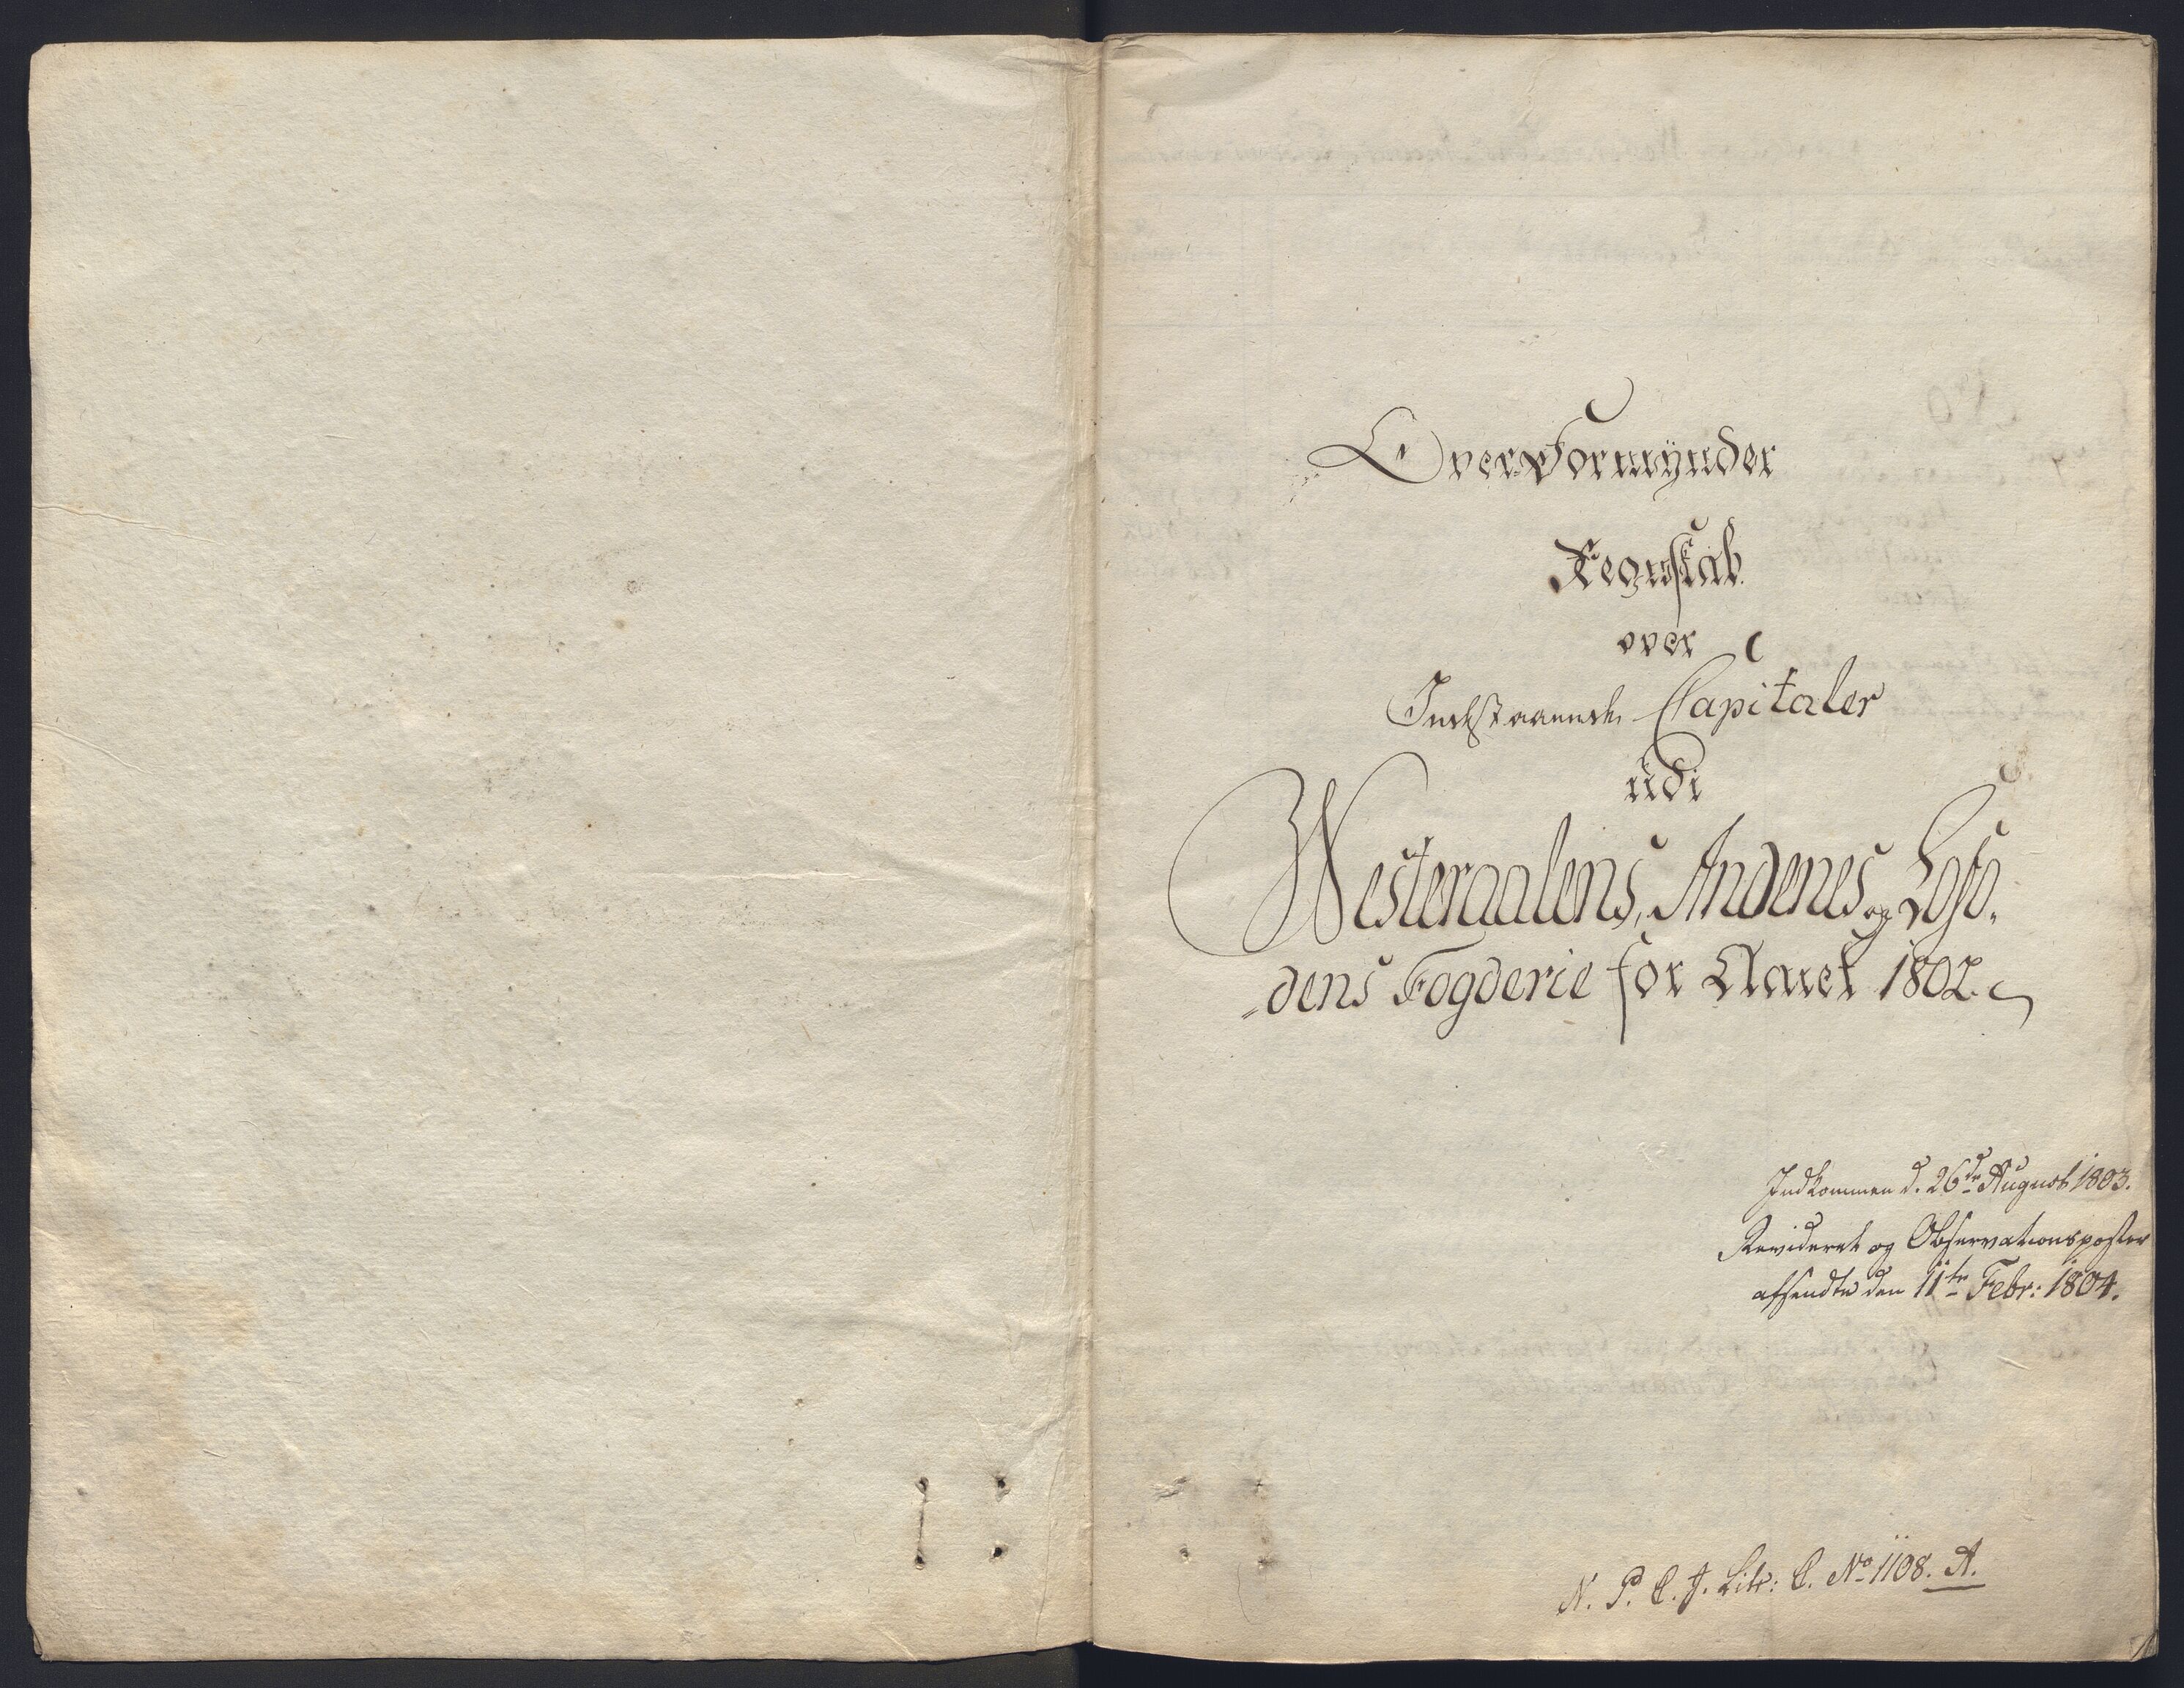 OverFormÿnder
Regnskab
over
Indestaaende Capitaler
udi
Westeraalens, Andenes og Lofo-
dens Fogderie for Aaret 1802.
Indkommen d. 26de August 1803.
Revideret og Observationsposter
afsendte den 11te Febr: 1804.
N. P. C. J. Litr: C. No 1108. A.